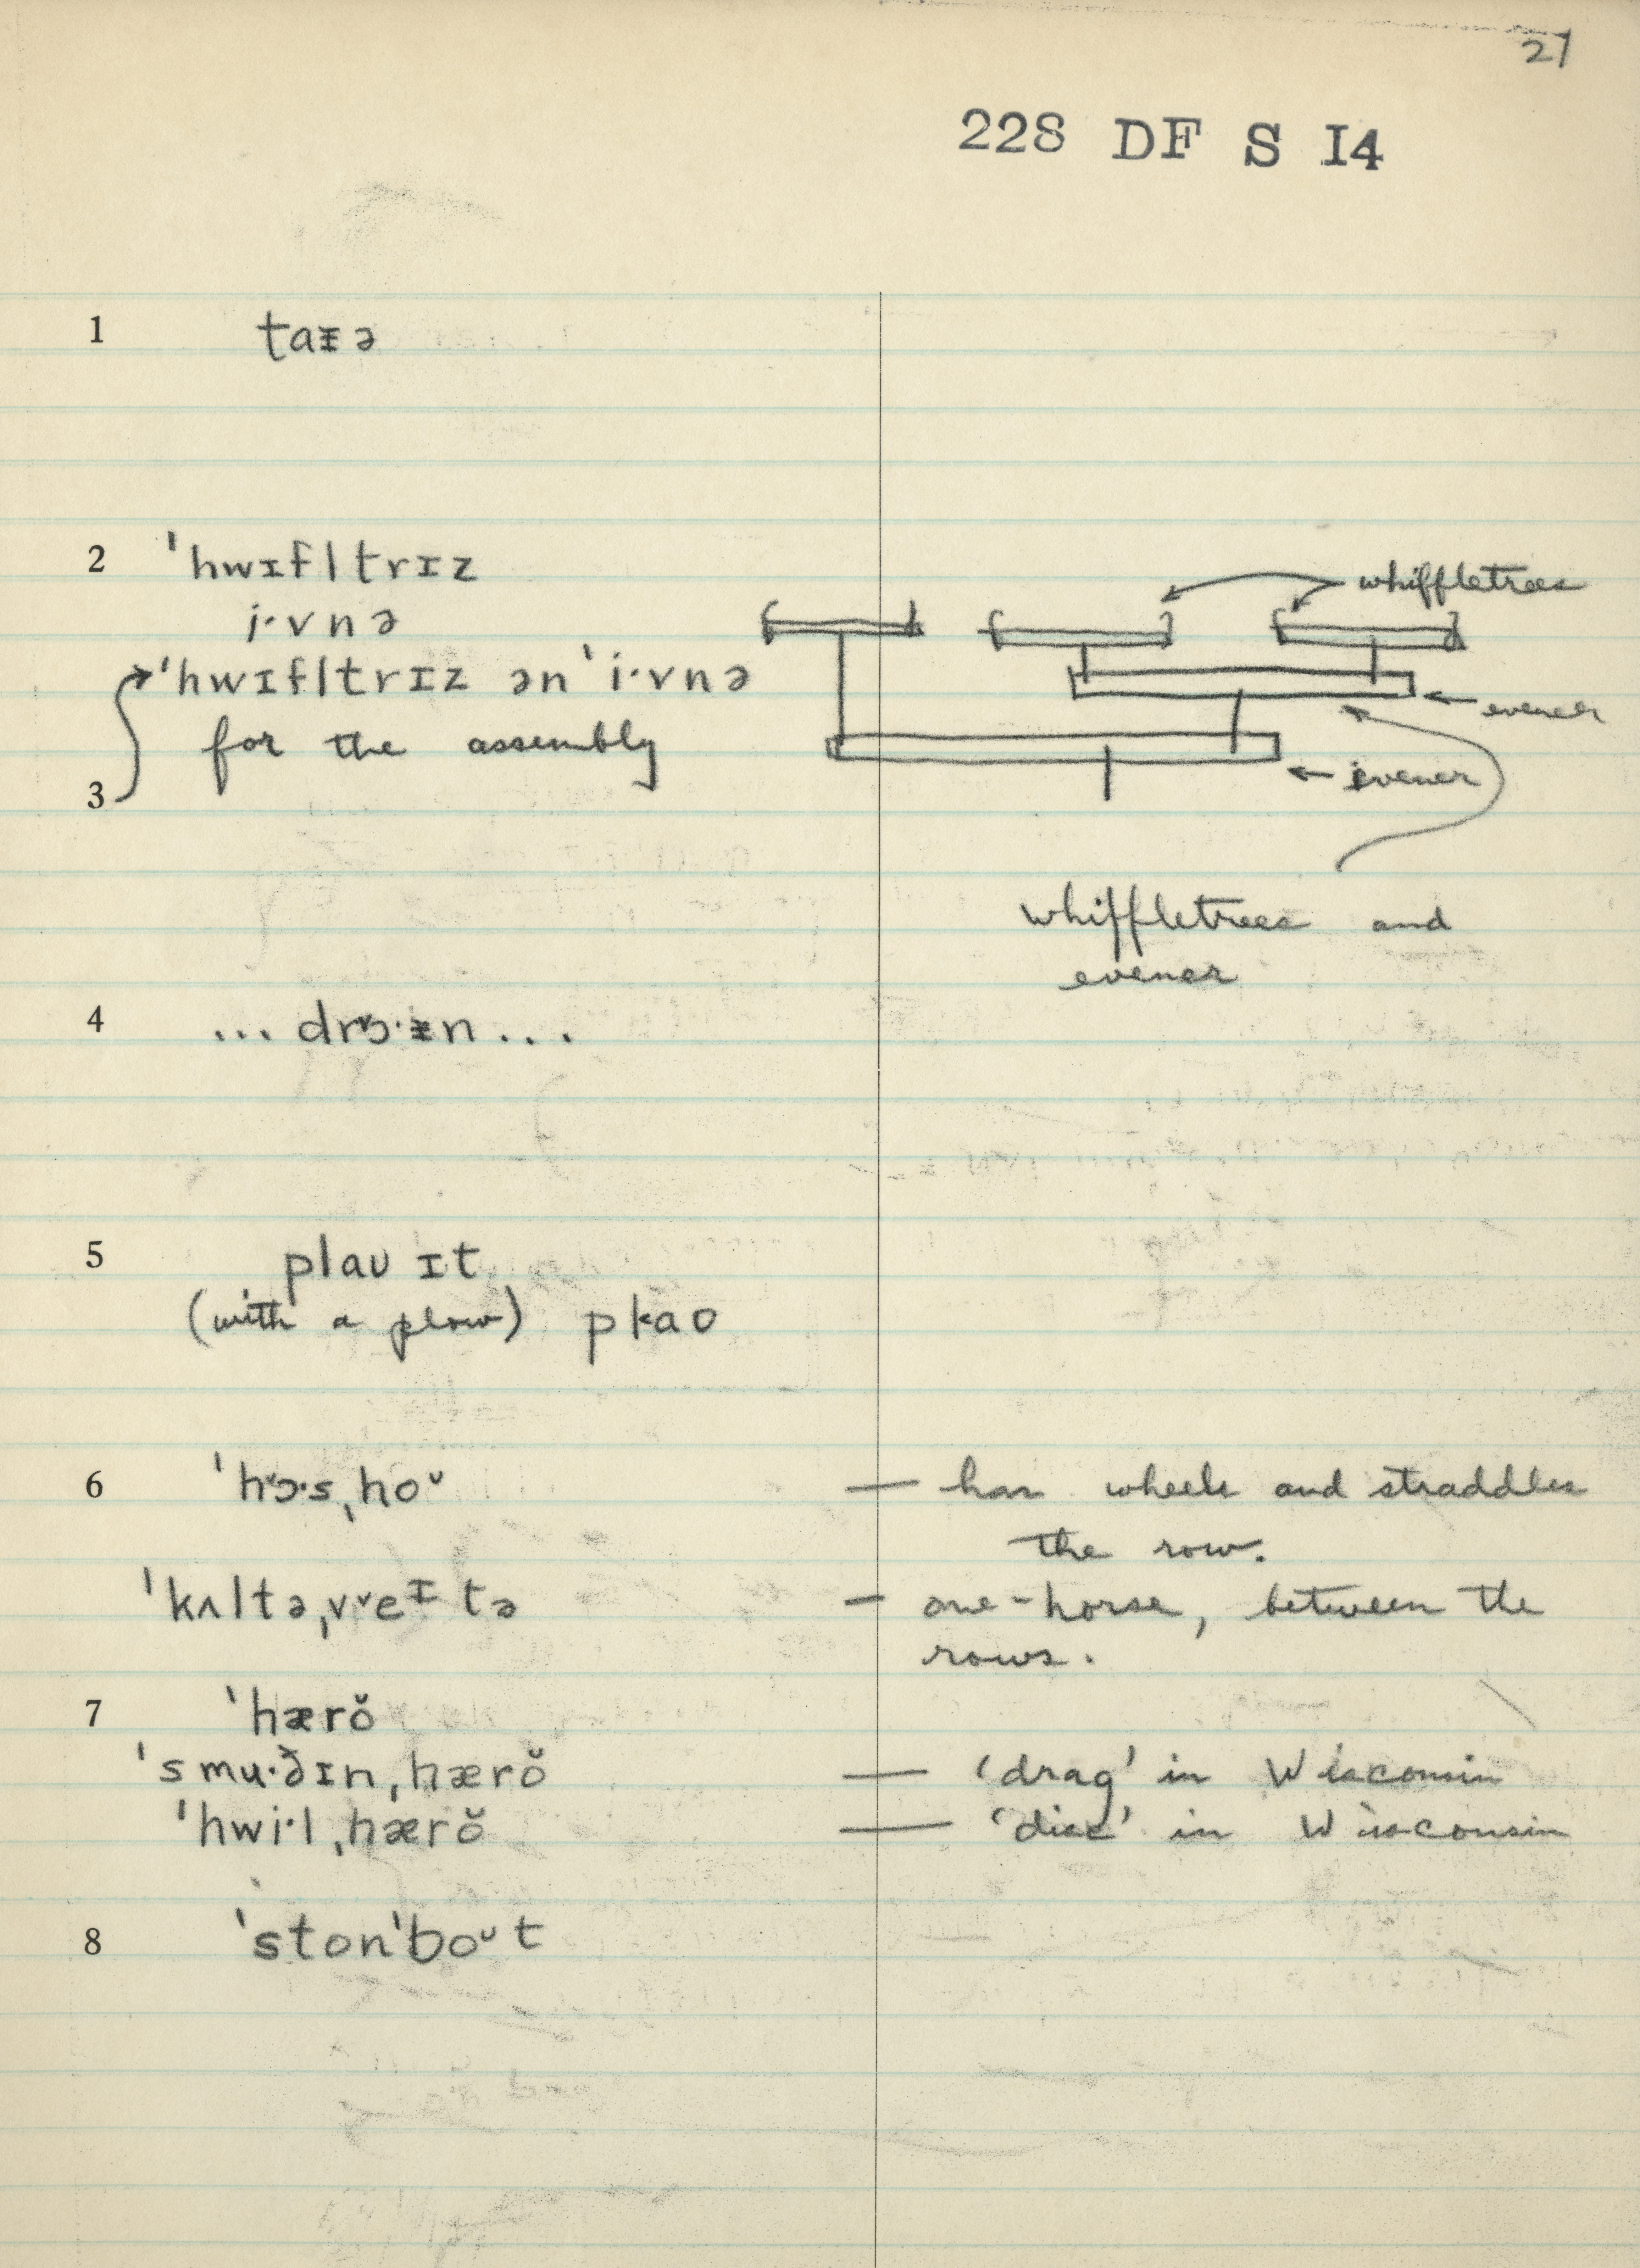 27
228 DF S I4
1 taᵻə
2 ˈhwɪfltrɪz
i·vnə
ˈhwɪfltrɪz ənˈi·vnə
for the assembly
3
whiffletrees
evener
evener
whiffletrees and
evener
4 ... drɔ·ᵻn ...
5 plaʊ ɪt
(with a plow) płao
6 ˈhɔ˅·sˌhoᶷ — has wheels and straddles
the row.
ˈkʌltəˌv˅eᴵtə — one-horse, between the
rows.
7 ˈhærŏ
ˈsmu·ðɪnˌhærŏ — 'drag' in Wisconsin
ˈhwi·lˌhærŏ — 'disc' in Wisconsin
8 ˈstonˈboᶷt